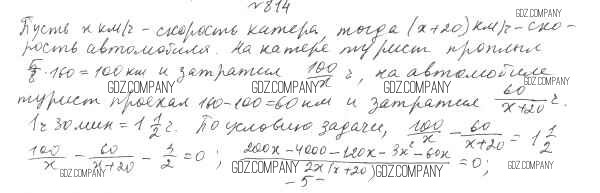 №814
GDZ.COMPANY
Пусть x км/ч - скорость катера, тогда (x+20) км/ч - ско-
рость автомобиля. На катере турист проплыл
5/8 · 160 = 100 км и затратил 100/x ч, на автомобиле
GDZ.COMPANY GDZ.COMPANY GDZ.COMPANY
турист проехал 160-100=60 км и затратил 60/(x+20) ч.
1ч 30 мин = 1 1/2 ч. По условию задачи, 100/x - 60/(x+20) = 1 1/2
100/x - 60/(x+20) - 3/2 = 0; (200x-4000-120x-3x²-60x)/(2x(x+20)) = 0;
GDZ.COMPANY GDZ.COMPANY GDZ.COMPANY
- 5 -